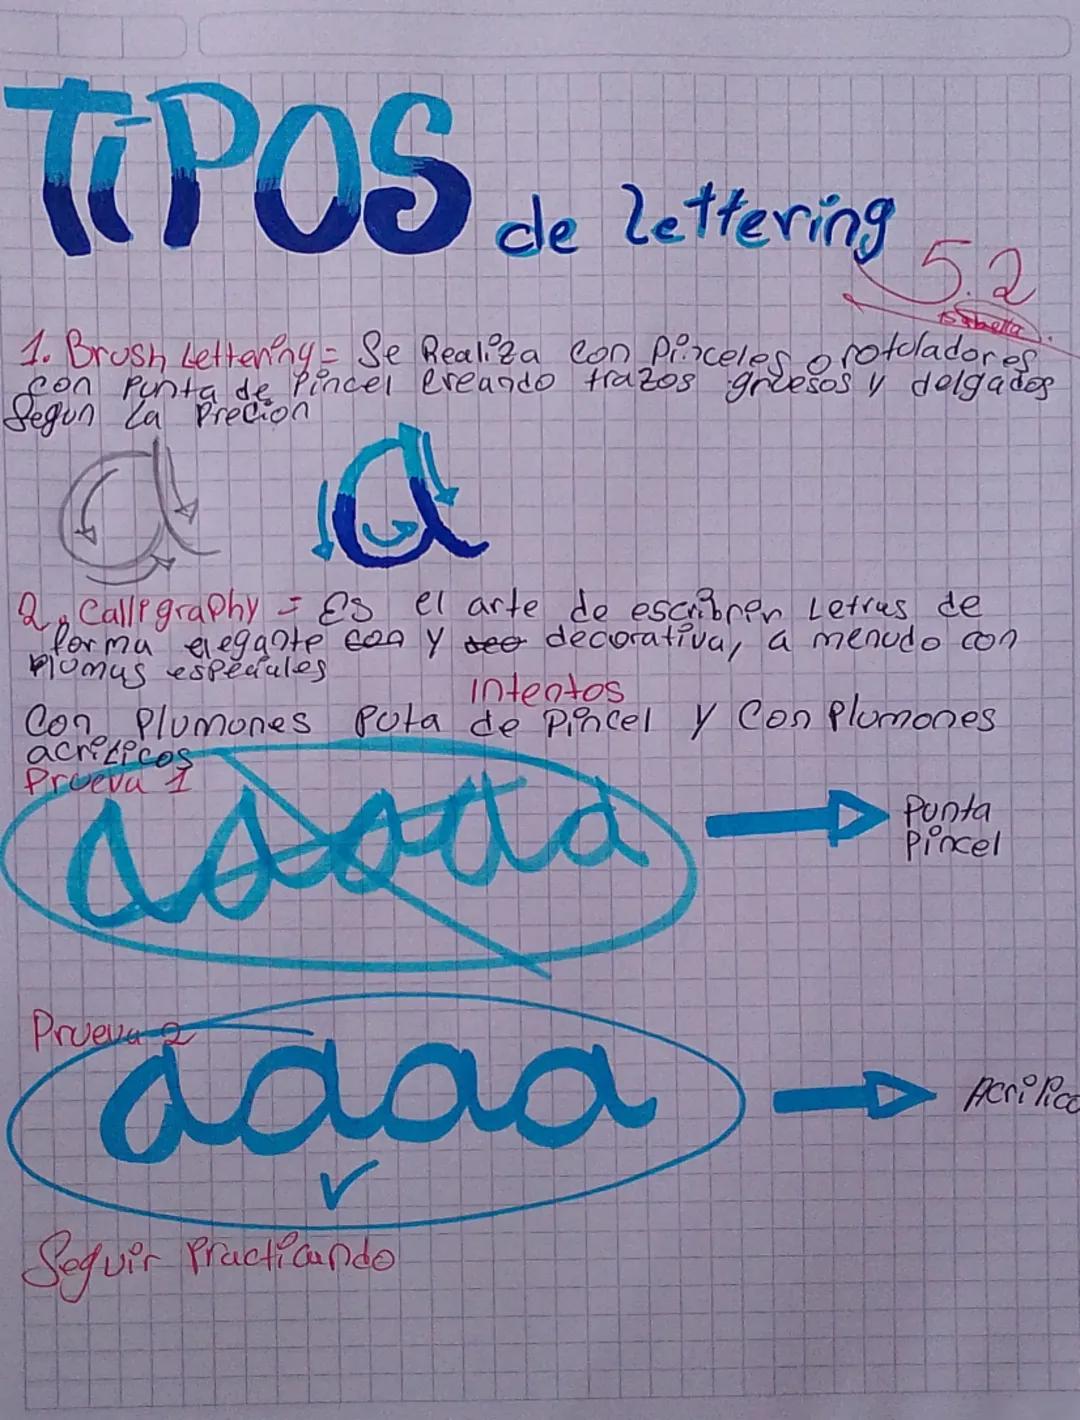 TiPOS de lettering
5.2
Isabella
1. Brush Lettering = Se Realiza con Pinceles o rotuladores
con Punta de Pincel creando trazos gruesos y delgados
Segun La Precion
a a
2. Calligraphy = Es el arte de escribrer Letras de
forma elegante con y decorativa, a menudo con
Plumas especiales
intentos
Con Plumones Puta de Pincel y Con Plumones
acrilicos
Prueva 1
aaaaa
Punta
Pincel
Prueva 2
aaaa
Acrilico
Seguir Practicando